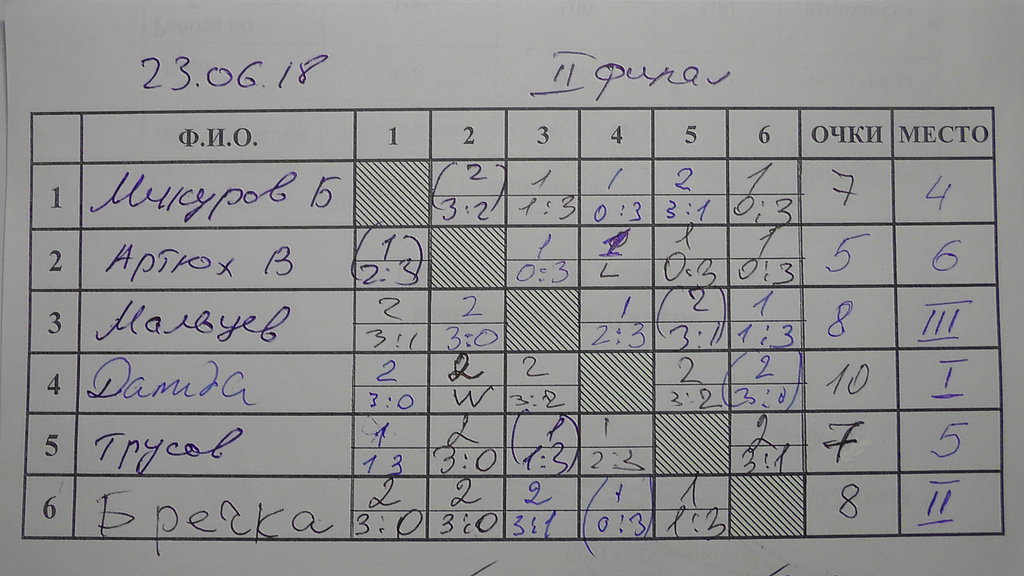 23.06.18 II финал
Ф.И.О. 1 2 3 4 5 6 ОЧКИ МЕСТО
1 Микуров Б (2 1 1 2 1 7 4
3:2) 1:3 0:3 3:1 0:3
2 Артюх В (1 1 1 1 1 5 6
2:3) 0:3 L 0:3 0:3
3 Мальцев 2 2 1 (2 1 8 III
3:1 3:0 2:3 3:1) 1:3
4 2 2 2 2 (2 10 I
3:0 W 3:2 3:2 3:0)
5 Трусов 1 2 (1 1 2 7 5
1 3 3:0 1:3) 2:3 3:1
6 Бречка 2 2 2 (1 1 8 II
3:0 3:0 3:1 0:3) 1:3